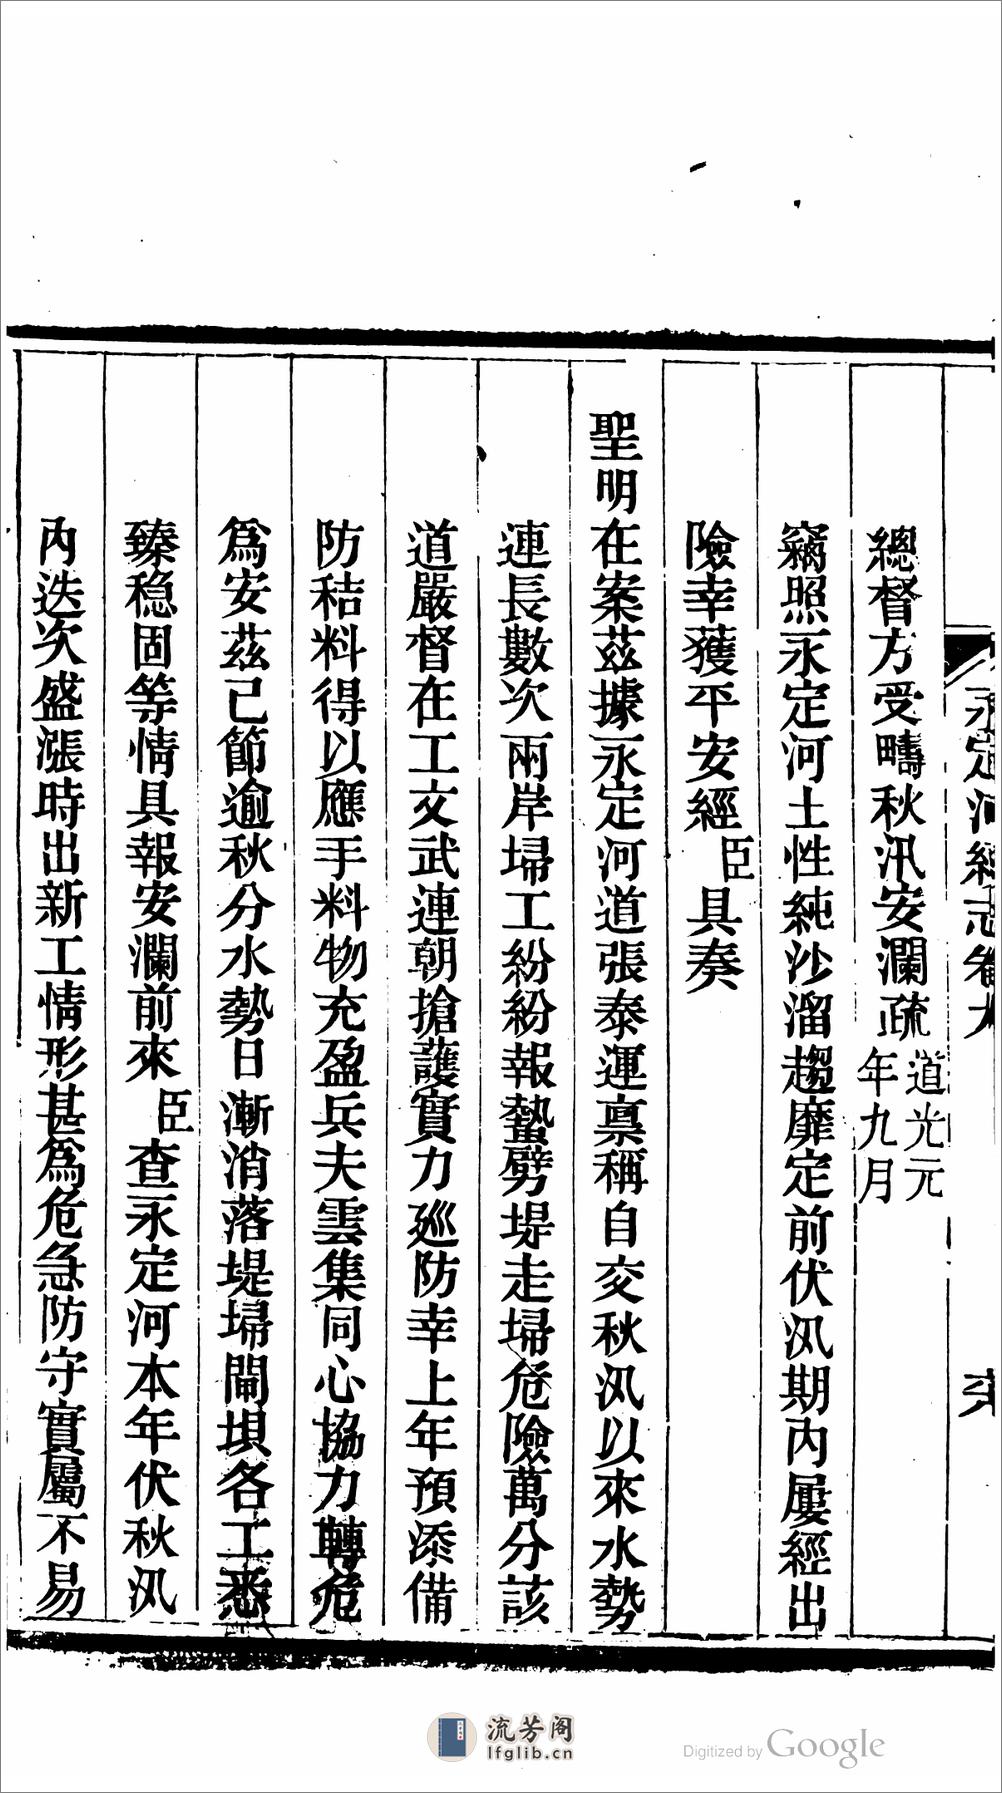 永定河續志卷九
總督方受疇秋汛安瀾疏道光元年九月
竊照永定河土性純沙溜趨靡定前伏汛期內屢經出
險幸獲平安經臣具奏
聖明在案茲據永定河道張泰運稟稱自交秋汛以來水勢
連長數次兩岸埽工紛紛報蟄劈堤走埽危險萬分該
道嚴督在工文武連朝搶護實力廵防幸上年預添備
防秸料得以應手料物充盈兵夫雲集同心協力轉危
爲安茲已節逾秋分水勢日漸消落堤埽閘垻各工悉
臻稳固等情具報安瀾前來臣查永定河本年伏秋汛
內迭次盛漲時出新工情形甚爲危急防守實屬不易
流芳阁
lfglib.cn
Digitized by Google